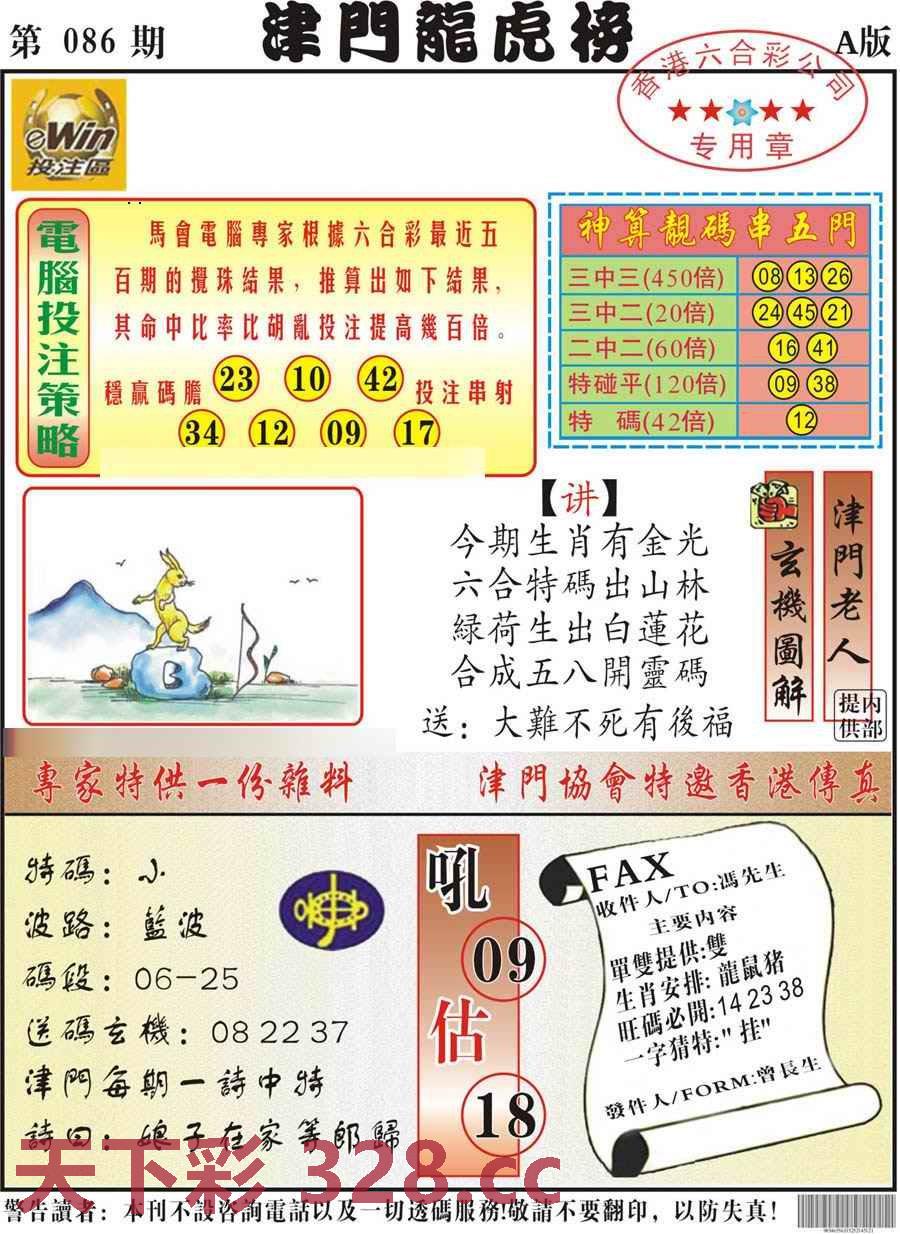 第 086 期
津門龍虎榜
A版
香港六合彩公司
专用章
eWin
投注區
電腦投注策略
馬會電腦專家根據六合彩最近五
百期的攪珠結果，推算出如下結果，
其命中比率比胡亂投注提高幾百倍。
穩贏碼膽 23 10 42 投注串射
34 12 09 17
神算靚碼串五門
三中三(450倍) 08 13 26
三中二(20倍) 24 45 21
二中二(60倍) 16 41
特碰平(120倍) 09 38
特 碼(42倍) 12
【讲】
今期生肖有金光
六合特碼出山林
緑荷生出白蓮花
合成五八開靈碼
送：大難不死有後福
玄機圖解
津門老人
内部提供
專家特供一份雜料
津門協會特邀香港傳真
特碼：小
波路：藍波
碼段：06-25
送碼玄機：08 22 37
津門每期一詩中特
詩曰：娘子在家等郎歸
吼
09
估
18
FAX
收件人/TO:馮先生
主要内容
單雙提供:雙
生肖安排: 龍鼠猪
旺碼必開:14 23 38
一字猜特:"挂"
發件人/FORM:曾長生
天下彩 328.cc
警告讀者：本刊不設咨詢電話以及一切透碼服務!敬請不要翻印，以防失真!